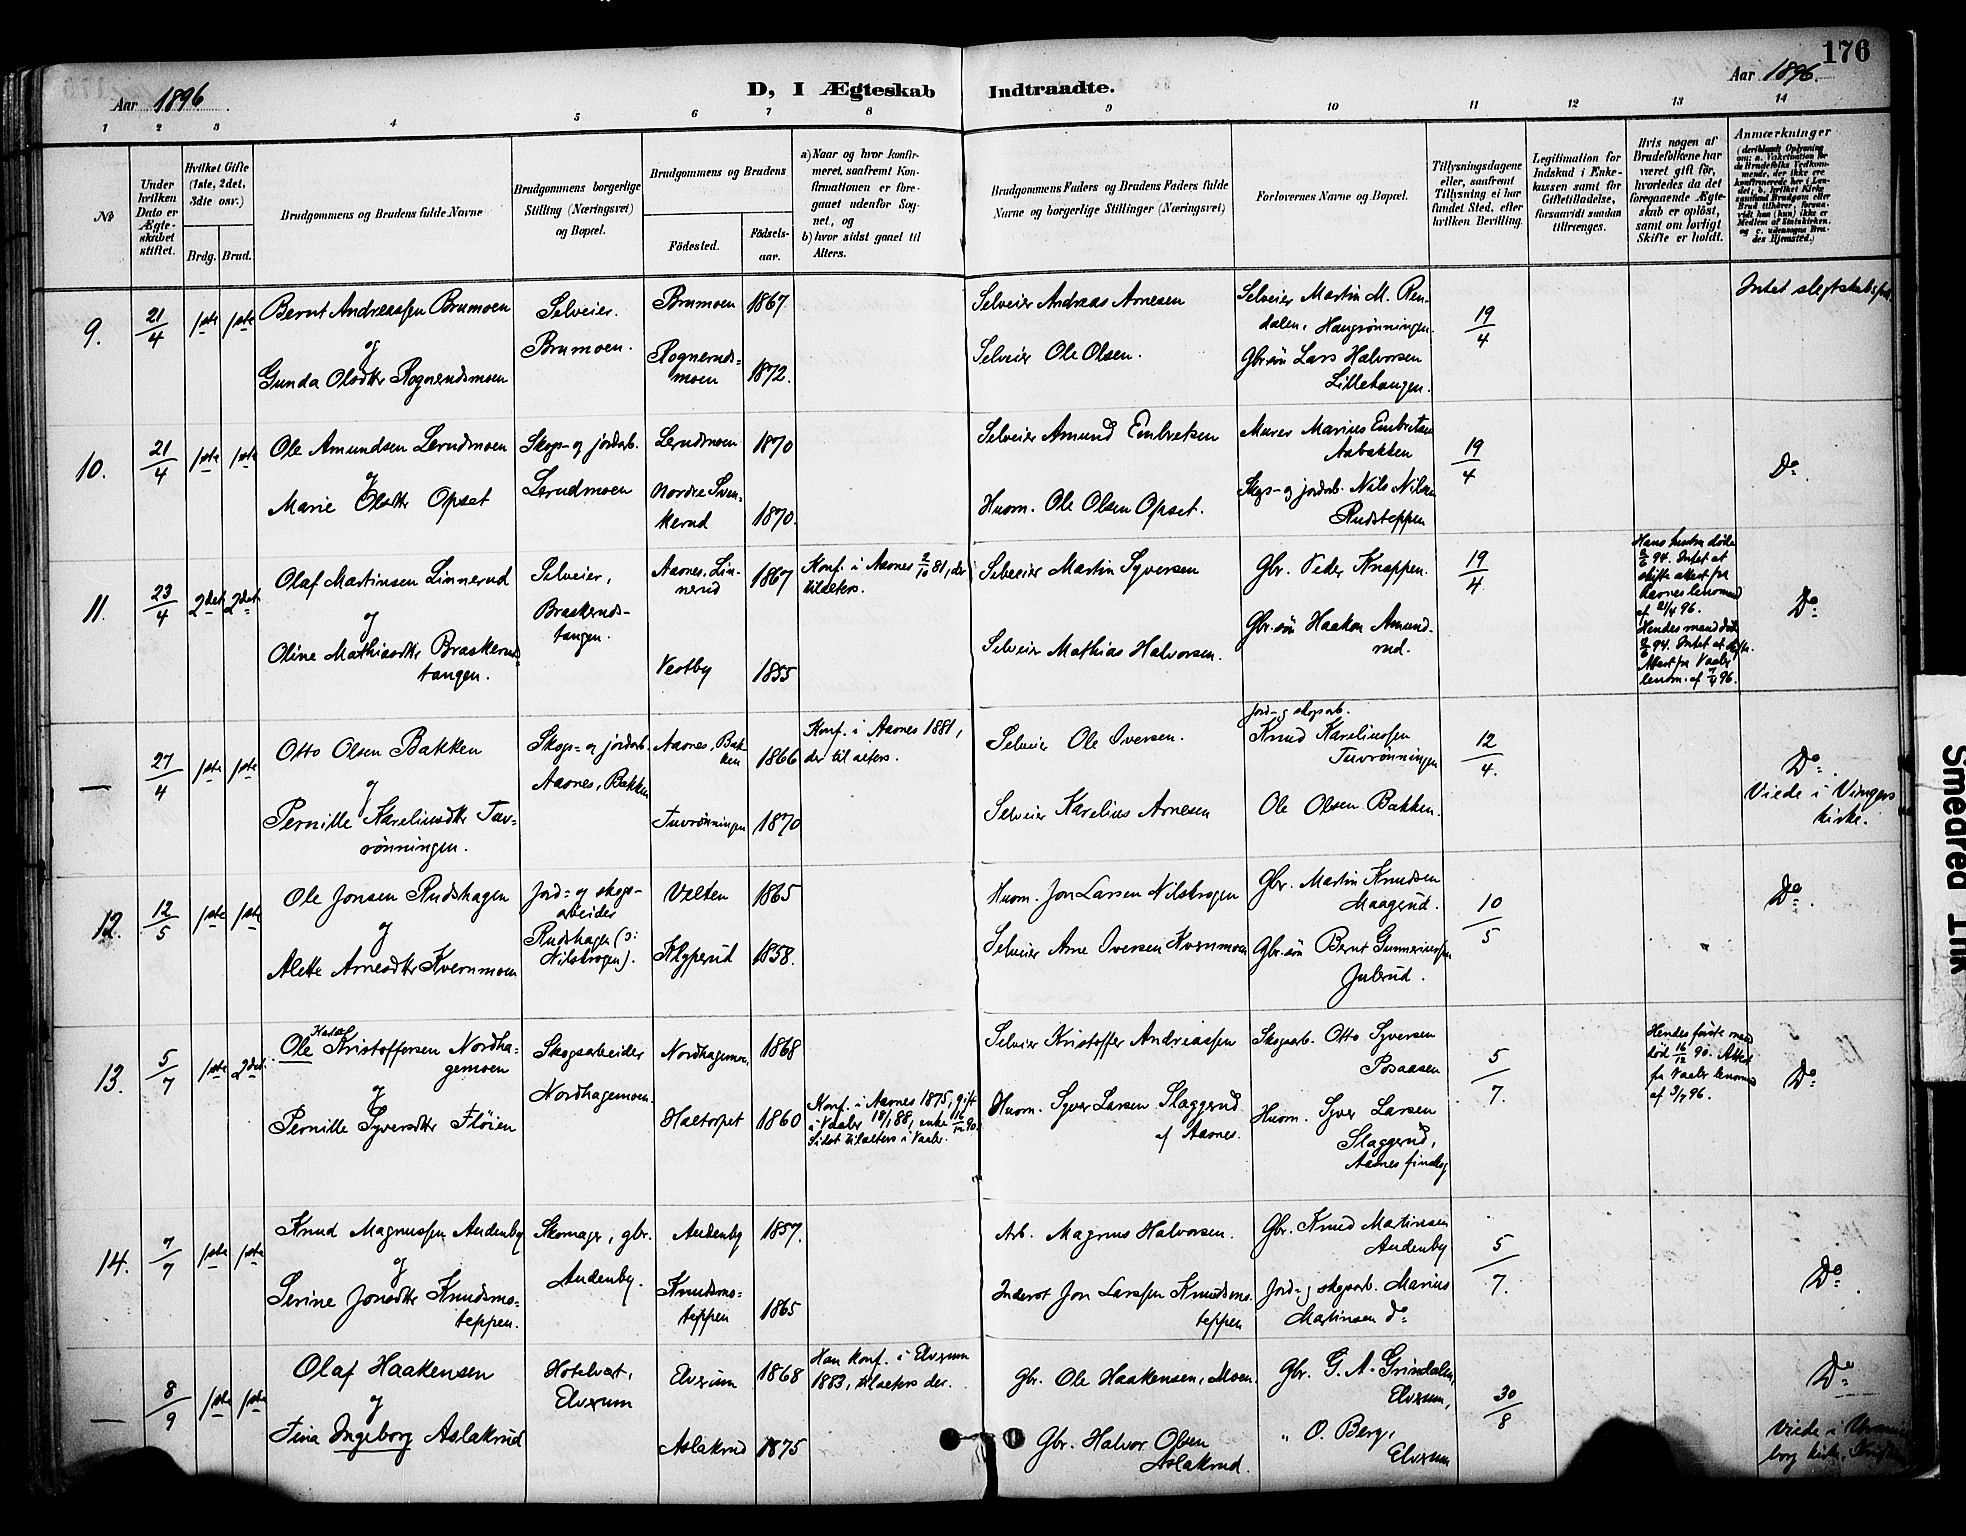 176
Aar 1896.
D, I Ægteskab Indtraadte.
Aar 1896.
1 2 3 4 5 6 7 8 9 10 11 12 13 14
No
Under hvilken Dato er Ægteskabet stiftet.
Hvilket Gifte (1ste, 2det, 3die osv.)
Brdg. Brud.
Brudgommens og Brudens fulde Navne
Brudgommens borgerlige Stilling (Næringsvei) og Bopæl.
Brudgommens og Brudens
Födested.
Födsels-aar.
a) Naar og hvor konfirmeret, saafremt Konfirmationen er foregaaet udenfor Sognet, og
b) hvor sidst gaaet til Alters.
Brudgommens Faders og Brudens Faders fulde Navne og borgerlige Stillinger (Næringsvei)
Forlovernes Navne og Bopæl.
Tillysningsdagene eller, saafremt Tillysning ei har fundet Sted, efter hvilken Bevilling.
Legitimation for Indskud i Enkekassen samt for Giftetilladelse, forsaavidt saadan tiltrænges.
Hvis nogen af Brudefolkene har været gift før, hvorledes da det foregaaende Ægteskab er opløst, samt om lovligt Skifte er holdt.
Anmærkninger
9. 21/4 1ste 1ste
Bernt Andreassen Brumoen
og
Gunda Olsdtr Rognerudsmoen
Selveier.
Brumoen.
Brumoen 1867.
Rognerudsmoen 1872.
Selveier Andreas Arnesen
Selveier Ole Olsen.
Selveier Martin M. Rendalen, Haugrønningen.
Gbr.søn Lars Halvorsen
Lillehaugen.
19/4
Intet slegtskabsforh.
10. 21/4 1ste 1ste
Ole Amundsen Lerudmoen
og
Marie Olsdtr Opset
Skogs- og jordarb.
Lerudmoen
Lerudmoen 1870
Nordre Svenkerud 1870.
Selveier Amund Embretsen
Huom. Ole Olsen Opset.
Murer Marius Embretsen
Aabakken
Skogs- og jordarb. Nils Nilsen
Rudsteppen
19/4
Do.
11. 23/4 2det 2det
Olaf Martinsen Linnerud
og
Oline Mathiasdtr Braskerudtangen.
Selveier,
Braskerudstangen.
Aasnes, Linnerud 1867
Vestby 1855
Konf. i Aasnes 2/10 81, der
tilalters.
Selveier Martin Syversen
Selveier Mathias Halvorsen.
Gbr. Peder Knappen.
Gbr.søn Haakon Amundrud.
19/4
Hans hustru døde
94. Intet at
skifte attest fra
Aasnes lensmand
af 21/4 96.
Hendes mand døde
94. Intet at skifte.
Attest fra Vaaler
lensm. af 7/4 96.
Do.
— 27/4 1ste 1ste
Otto Olsen Bakken
og
Pernille Kareliusdtr Tuvrønningen.
Skogs- og jordarb.
Aasnes, Bakken
Aasnes, Bakken 1866
Tuvrønningen 1870
Konf. i Aasnes 1881,
der til alters.
Selveier Ole Iversen.
Selveier Karelius Arnesen
Jord- og skogsarb.
Knud Kareliussen
Tuvrønningen
Ole Olsen Bakken.
12/4.
Do.
Viede i Vingers
kirke.
12. 12/5 1ste 1ste
Ole Jonsen Rudshagen
og
Alette Arnesdtr Kvernmoen
Jord- og skogs-
arbeider
Rudshagen (ɔ:
Nilsbrogen).
Velten 1865
Klyperud 1858.
Huom. Jon Larsen Nilsbrogen
Selveier Arne Iversen Kvernmoen
Gbr. Martin Knudsen
Maagerud.
Gbr.søn Bernt Gunneriussen
Julsrud.
10/5
Do.
13. 5/7 1ste 2det.
Ole Kristoffersen Nordhagemoen
og
Pernille Syversdtr Fløien
Skogsarbeider
Nordhagemoen.
Nordhagemoen. 1868
Haltorpet 1860
Konf. i Aasnes 1875, gift
i Vaaler 18/1 88, enke 16/12 90.
Sidst tilalters i Vaaler.
Selveier Kristoffer Andreassen
Huom. Syver Larsen Slaggerud
af Aasnes.
Skogsarb. Otto Syversen
Posaasen
Huom. Syver Larsen
Slaggerud,
Aasnes finskog
5/7.
Hendes første mand
død 16/12 90. Attest
fra Vaaler lensmd
af 3/7 96.
Do.
14. 7/7 1ste 1ste
Knud Magnussen Audenby
og
Serine Jonsdtr Knudsmoteppen.
Skomager, gbr.
Audenby.
Audenby 1857.
Knudsmoteppen 1865
Arb. Magnus Halvorsen.
Inderst Jon Larssen Knudsmoteppen
Gbr. Knud Martinsen
Audenby
Jord- og skogsarb. Marius
Martinsen do
5/7.
Do.
— 8/9 1ste 1ste
Olaf Haakensen
og
Tina Ingeborg Aslakrud
Hotelvært,
Elverum
Elverum 1868
Aslakrud 1875
Han konf. i Elverum
1883, tilalters der.
Gbr. Ole Haakensen, Moen.
Gbr. Halvor Olsen
Aslakrud.
Gbr. G. A. Grindalen,
Elverum,
" O. Berg,
Elverum
30/8
Do
Viede i
Smeared Ink